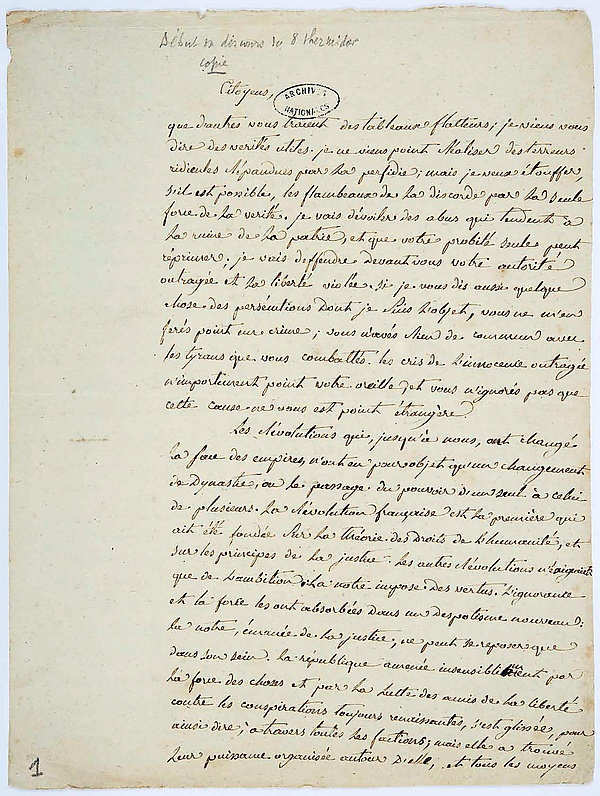 Début du discours du 8 thermidor
copie
Citoyens,
ARCHIVES
NATIONALES
que d'autres vous tracent des tableaux flatteurs; je viens vous
dire des verités utiles. je ne viens point réaliser des terreurs
ridicules répandues par la perfidie; mais je veux étouffer,
s'il est possible, les flambeaux de la discorde par la seule
force de la verité. je vais dévoiler des abus qui tendent à
la ruine de la patrie, et que votre probité seule peut
réprimer. je vais deffendre devant vous votre autorité
outragée et la liberté violée. si je vous dis aussi quelque
chose des persécutions dont je suis l'objet, vous ne m'en
ferés point un crime; vous n'avés rien de commun avec
les tyrans que vous combattés. les cris de l'innocence outragée
n'importunent point votre oreille, et vous n'ignorés pas que
cette cause ne vous est point étrangère.
Les révolutions qui, jusqu'à nous, ont changé
la face des empires, n'ont eu pour objet qu'un changement
de dynastie, ou le passage du pouvoir d'un seul à celui
de plusieurs. la révolution française est la première qui
ait été fondée sur la théorie des droits de l'humanité, et
sur les principes de la justice. les autres révolutions n'éxigeaient
que de l'ambition. la notre impose des vertus. l'ignorance
et la force les ont absorbées dans un despotisme nouveau:
la notre, émanée de la justice, ne peut se reposer que
dans son sein. la république amenée insensiblement par
la force des choses et par la lutte des amis de la liberté
contre les conspirations toujours renaissantes, s'est glissée, pour
ainsi dire, à travers toutes les factions; mais elle a trouvé
leur puissance organisée autour d'elle, et tous les moyens
1